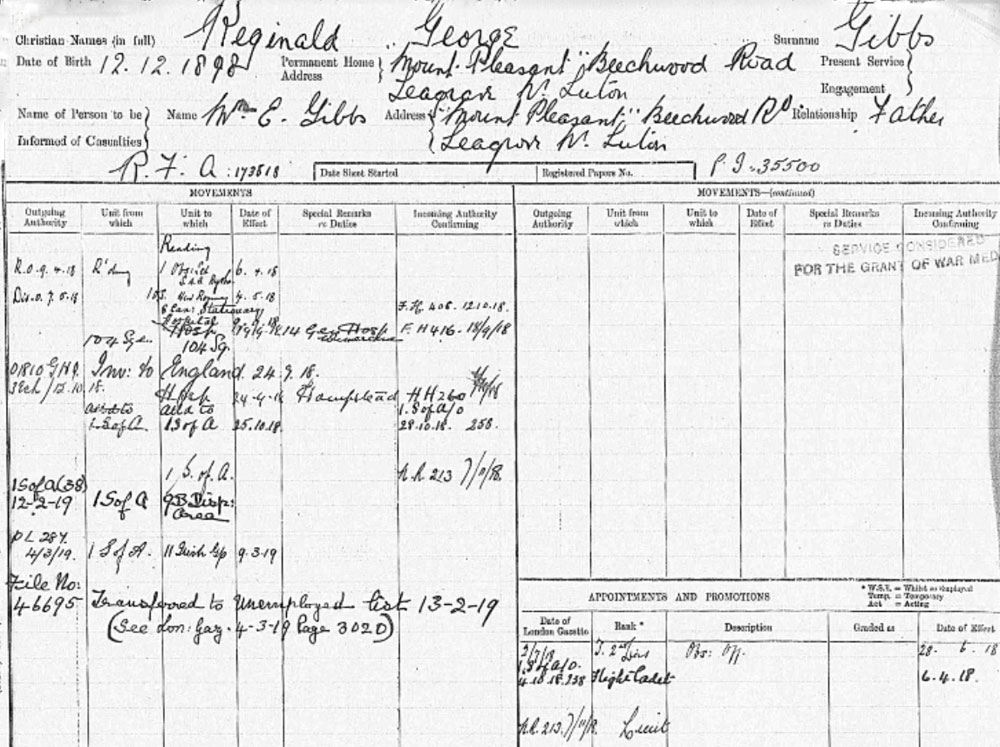 Christian Names (in full) Reginald George Surname Gibbs
Date of Birth 12.12.1898 Permanent Home Address "Mount Pleasant", Beechwood Road Present Service
Leagrave Nr. Luton Engagement
Name of Person to be Informed of Casualties Name Wm E. Gibbs Address "Mount Pleasant" Beechwood Rd Relationship Father
Leagrave Nr. Luton
R. F. A: 173518 Date Sheet Started Registered Papers No. P.I. 35500
MOVEMENTS MOVEMENTS—(continued)
Outgoing Authority Unit from which Unit to which Date of Effect Special Remarks re Duties Incoming Authority Confirming Outgoing Authority Unit from which Unit to which Date of Effect Special Remarks re Duties Incoming Authority Confirming
SERVICE CONSIDERED
FOR THE GRANT OF WAR MED
Reading
R.O. 9.4.18 R'dng 1 6.4.18
Dis.O. 7.5.18 New Romney 4.5.18
6 Can: Stationary Hospital F.H. 406. 12.10.18.
104 Sqn. Hosp 14 Gen Hosp F.H 416. 18/9/18
104 Sq.
01810 GHQ Inv: to England. 24.9.18.
3Ech/15.10.18. Hosp Hampstead HH 260
att to att to 1.S of A/O
1 S of A. 1 S of A 25.10.18. 28.10.18. 256.
1 S. of A. 213 7/11/18.
1 S of A (38)
12-2-19 1 S of A 9B Disp: Area
PL 287.
4/3/19. 1 S of A. 11 Irish Gp 9.3.19
File No:
46695 Transferred to Unemployed list 13-2-19
(See Lon: Gaz. 4-3-19 Page 302D)
* W.S.E. = Whilst so employed
Temp. = Temporary
Act = Acting
APPOINTMENTS AND PROMOTIONS
Date of London Gazette Rank * Description Graded as Date of Effect
2/7/18 T. 2nd Obs: Off. 28. 6. 18
1. S of A/O.
4.10.18. 238 Flight Cadet 6.4.18.
213. 7/11/18. Lieut